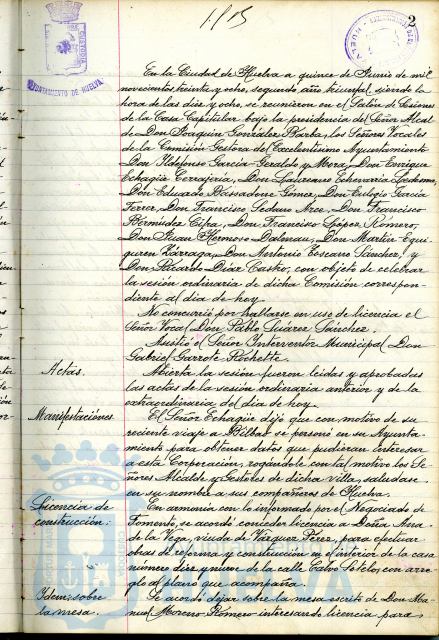 2
AYUNTAMIENTO DE HUELVA
En la Ciudad de Huelva a quince de Junio de mil
novecientos treinta y ocho, segundo año triunfal, siendo la
hora de las diez y ocho, se reunieron en el Salón de Sesiones
de la Casa Capitular bajo la presidencia del Señor Alcalde
Don Joaquín González Barba, los Señores Vocales
de la Comisión Gestora del Excelentísimo Ayuntamiento
Don Ildefonso García-Geraldo y Mora, Don Enrique
Echagüe Don Laureano Echevarría
Don Eduardo Gómez, Don Eulogio García
Ferrer, Don Francisco Seduno Arce, Don Francisco
Bermúdez Cifra, Don Francisco López Romero,
Don Juan Hermoso Don Martín Equi-
guren Zárraga, Don Antonio Toscano Sánchez y
Don Ricardo Díaz Castro, con objeto de celebrar
la sesión ordinaria de dicha Comisión correspon-
diente al día de hoy.
No concurrió por hallarse en uso de licencia el
Señor Vocal Don Pablo Suárez Sánchez.
Asistió el Señor Interventor Municipal Don
Gabriel Garrote
Actas.
Abierta la sesión fueron leidas y aprobadas
las actas de la sesión ordinaria anterior y de la
extraordinaria del día de hoy.
Manifestaciones
El Señor Echagüe dijo que con motivo de su
reciente viaje a Bilbao se personó en su Ayunta-
miento para obtener datos que pudieran interesar
a esta Corporación, rogándole con tal motivo los Se-
ñores Alcalde y Gestores de dicha villa, saludase
en su nombre a sus compañeros de Huelva.
Licencia de
construcción:
En armonía con lo informado por el Negociado de
Fomento, se acordó conceder licencia a Doña Ana
de la Vega, viuda de Vázquez Pérez, para efectuar
obras de reforma y construcción en el interior de la casa
número diez y nueve de la calle Calvo Sotelo, con arre-
glo al plano que acompaña.
Idem: sobre
la mesa.
Se acordó dejar sobre la mesa escrito de Don Ma-
nuel Moreno Romero interesando licencia para